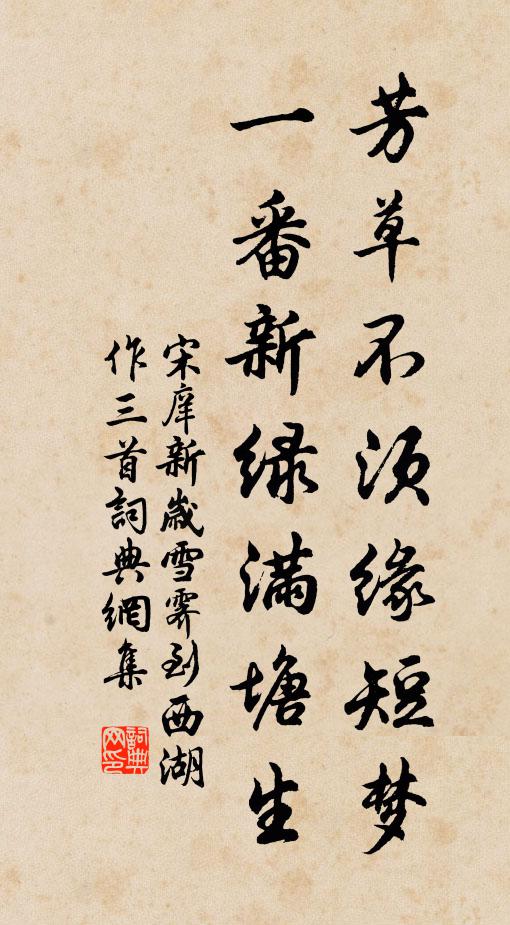 芳草不须缘短梦
一番新绿满塘生
宋庠新歲雪霽到西湖
作三首詞典網集
詞典
网印